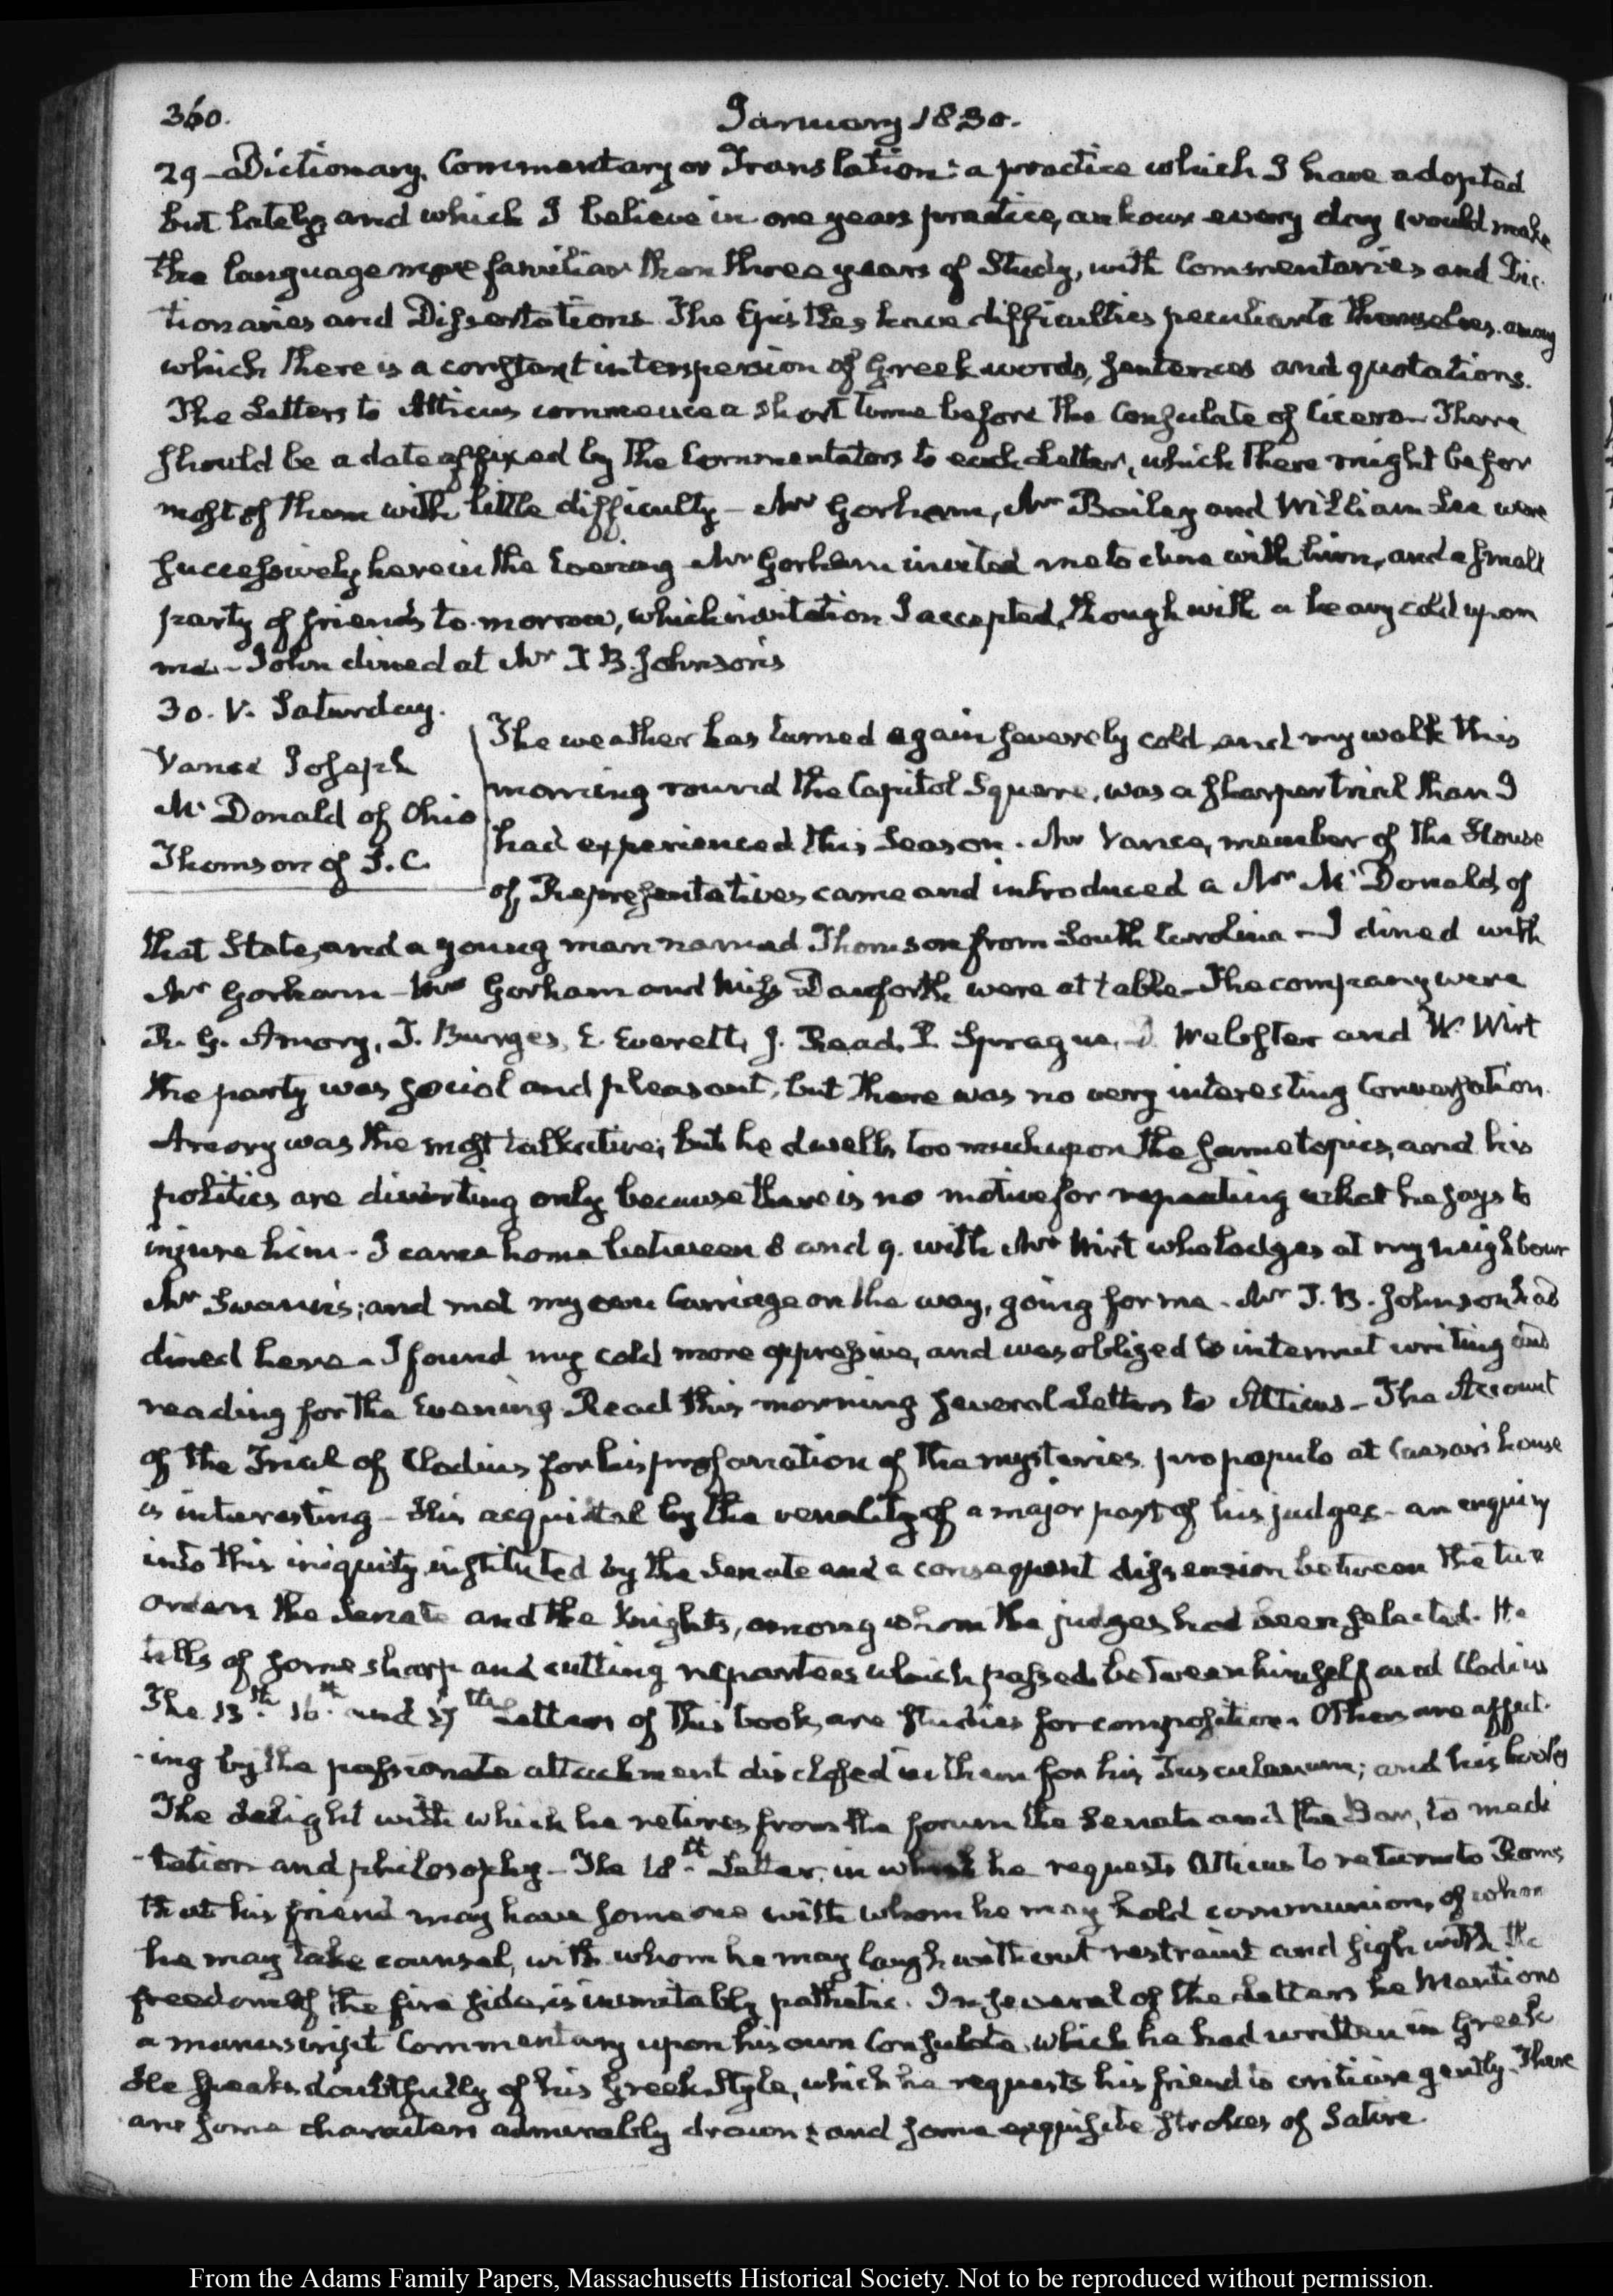 360.
January 1830.
29 – Dictionary, Commentary or Translation: a practice which I have adopted
but lately, and which I believe in one years practice, an hour every day would make
the language more familiar than three years of Study, with Commentaries and Dic-
tionaries and Dissertations. The Epistles have difficulties peculiar to themselves. among
which there is a constant interspersion of Greek words, sentences and quotations.
The Letters to Atticus commence a short time before the Consulate of Cicero – There
should be a date affixed by the Commentators to each Letter, which there might be for
most of them with little difficulty – Mr Gorham, Mr Bailey and William Lee were
successively here in the Evening – Mr Gorham invited me to dine with him, and a small
party of friends to-morrow, which invitation I accepted, though with a heavy cold upon
me – John dined at Mr J B. Johnson's
30. V. Saturday.
Vance Joseph
McDonald of Ohio
Thomson of S. C.
The weather has turned again severely cold, and my walk this
morning round the Capitol Square, was a sharper trial than I
had experienced this Season. Mr Vance, member of the House
of Representatives came and introduced a Mr McDonald, of
that State, and a young man named Thomson from South Carolina – I dined with
Mr Gorham – Mrs Gorham and Miss Danforth were at table – The company were
R. G. Amory, T. Burges, E. Everett, J. Read, P. Sprague, D. Webster and W. Wirt
the party was social and pleasant, but there was no very interesting Conversation.
Amory was the most talkative; but he dwells too much upon the same topics, and his
politics are diverting only because there is no motive for repeating what he says to
injure him – I came home between 8 and 9. with Mr Wirt who lodges at my neighbour
Mr Swann's; and met my own Carriage on the way, going for me. Mr J. B. Johnson had
dined here – I found my cold more oppressive, and was obliged to intermit writing and
reading for the Evening. Read this morning several Letters to Atticus – The Account
of the Trial of Clodius for his profanation of the mysteries pro populo at Caesar's house
is interesting – His acquittal by the venality of a major part of his judges – an enquiry
into this iniquity instituted by the Senate and a consequent dissension between the two
orders the Senate and the Knights, among whom the judges had been selected. He
tells of some sharp and cutting repartees which passed between himself and Clodius
The 13th. 16th. and 17th Letters of this book, are studies for composition. Others are affect-
-ing by the passionate attachment disclosed in them for his Tusculanum; and his books
The delight with which he retires from the forum the Senate and the Bar, to medi
-tation and philosophy – The 18th. Letter, in which he requests Atticus to return to Rome,
that his friend may have some one with whom he may hold communion, of whom
he may take counsel, with whom he may laugh without restraint and sigh with the
freedom of the fire side, is inimitably pathetic. In several of the Letters he Mentions
a manuscript Commentary upon his own Consulate, which he had written in Greek
He speaks doubtfully of his Greek Style, which he requests his friend to criticise gently. There
are some characters admirably drawn; and some exquisite strokes of Satire.
From the Adams Family Papers, Massachusetts Historical Society. Not to be reproduced without permission.